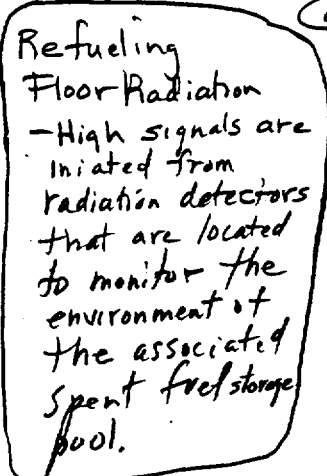 Refueling
Floor Radiation
-High signals are
iniated from
radiation detectors
that are located
to monitor the
environment of
the associated
spent fuel storage
pool.